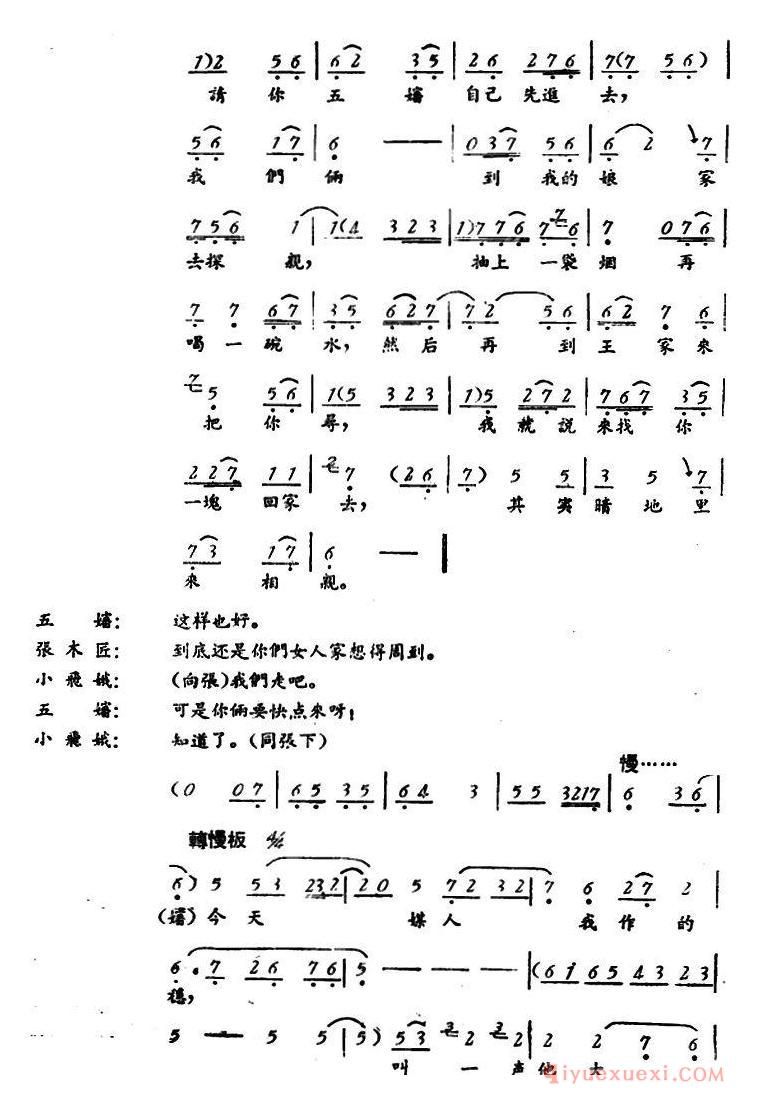 1)2 56 | 62 35 | 26 276 | 7(7 56) |
請 你 五 嬸 自己 先進 去,
56 17 | 6 — | 037 56 | 6 2 7 |
我 們 倆 到 我的 娘 家
756 1 | 1(4 323 | 1)776 7 76 | 7 076 |
去探 親, 抽上 一袋 烟 再
7 7 67 | 35 627 | 72 56 | 62 7 6 |
喝 一 碗 水, 然后 再 到 王 家 來
7 5 56 | 1(5 323 | 1)5 272 | 767 35 |
把 你 尋, 我 就 説 來找 你
227 11 | 2 7 (26 | 7) 5 5 | 3 5 7 |
一塊 回家 去, 其 实 暗 地 里
73 17 | 6 — |
來 相 親。
五 嬸: 这样也好。
張木匠: 到底还是你們女人家想得周到。
小飛娥: (向張)我們走吧。
五 嬸: 可是你倆要快点來呀;
小飛娥: 知道了。(同張下)
慢……
(0 07 | 65 35 | 64 3 | 55 3217 | 6 36 |
轉慢板 4/4
6) 5 53 232 | 20 5 72 32 | 7 6 27 2 |
(嬸)今 天 媒 人 我 作 的
6·7 26 76 | 5 — — — | (61 65 43 23 |
穩,
5 — 5 5 | 5) 53 2 2 2 2 | 2 2 7 6 |
叫 一 声 他 大
4iyuexuexi.com